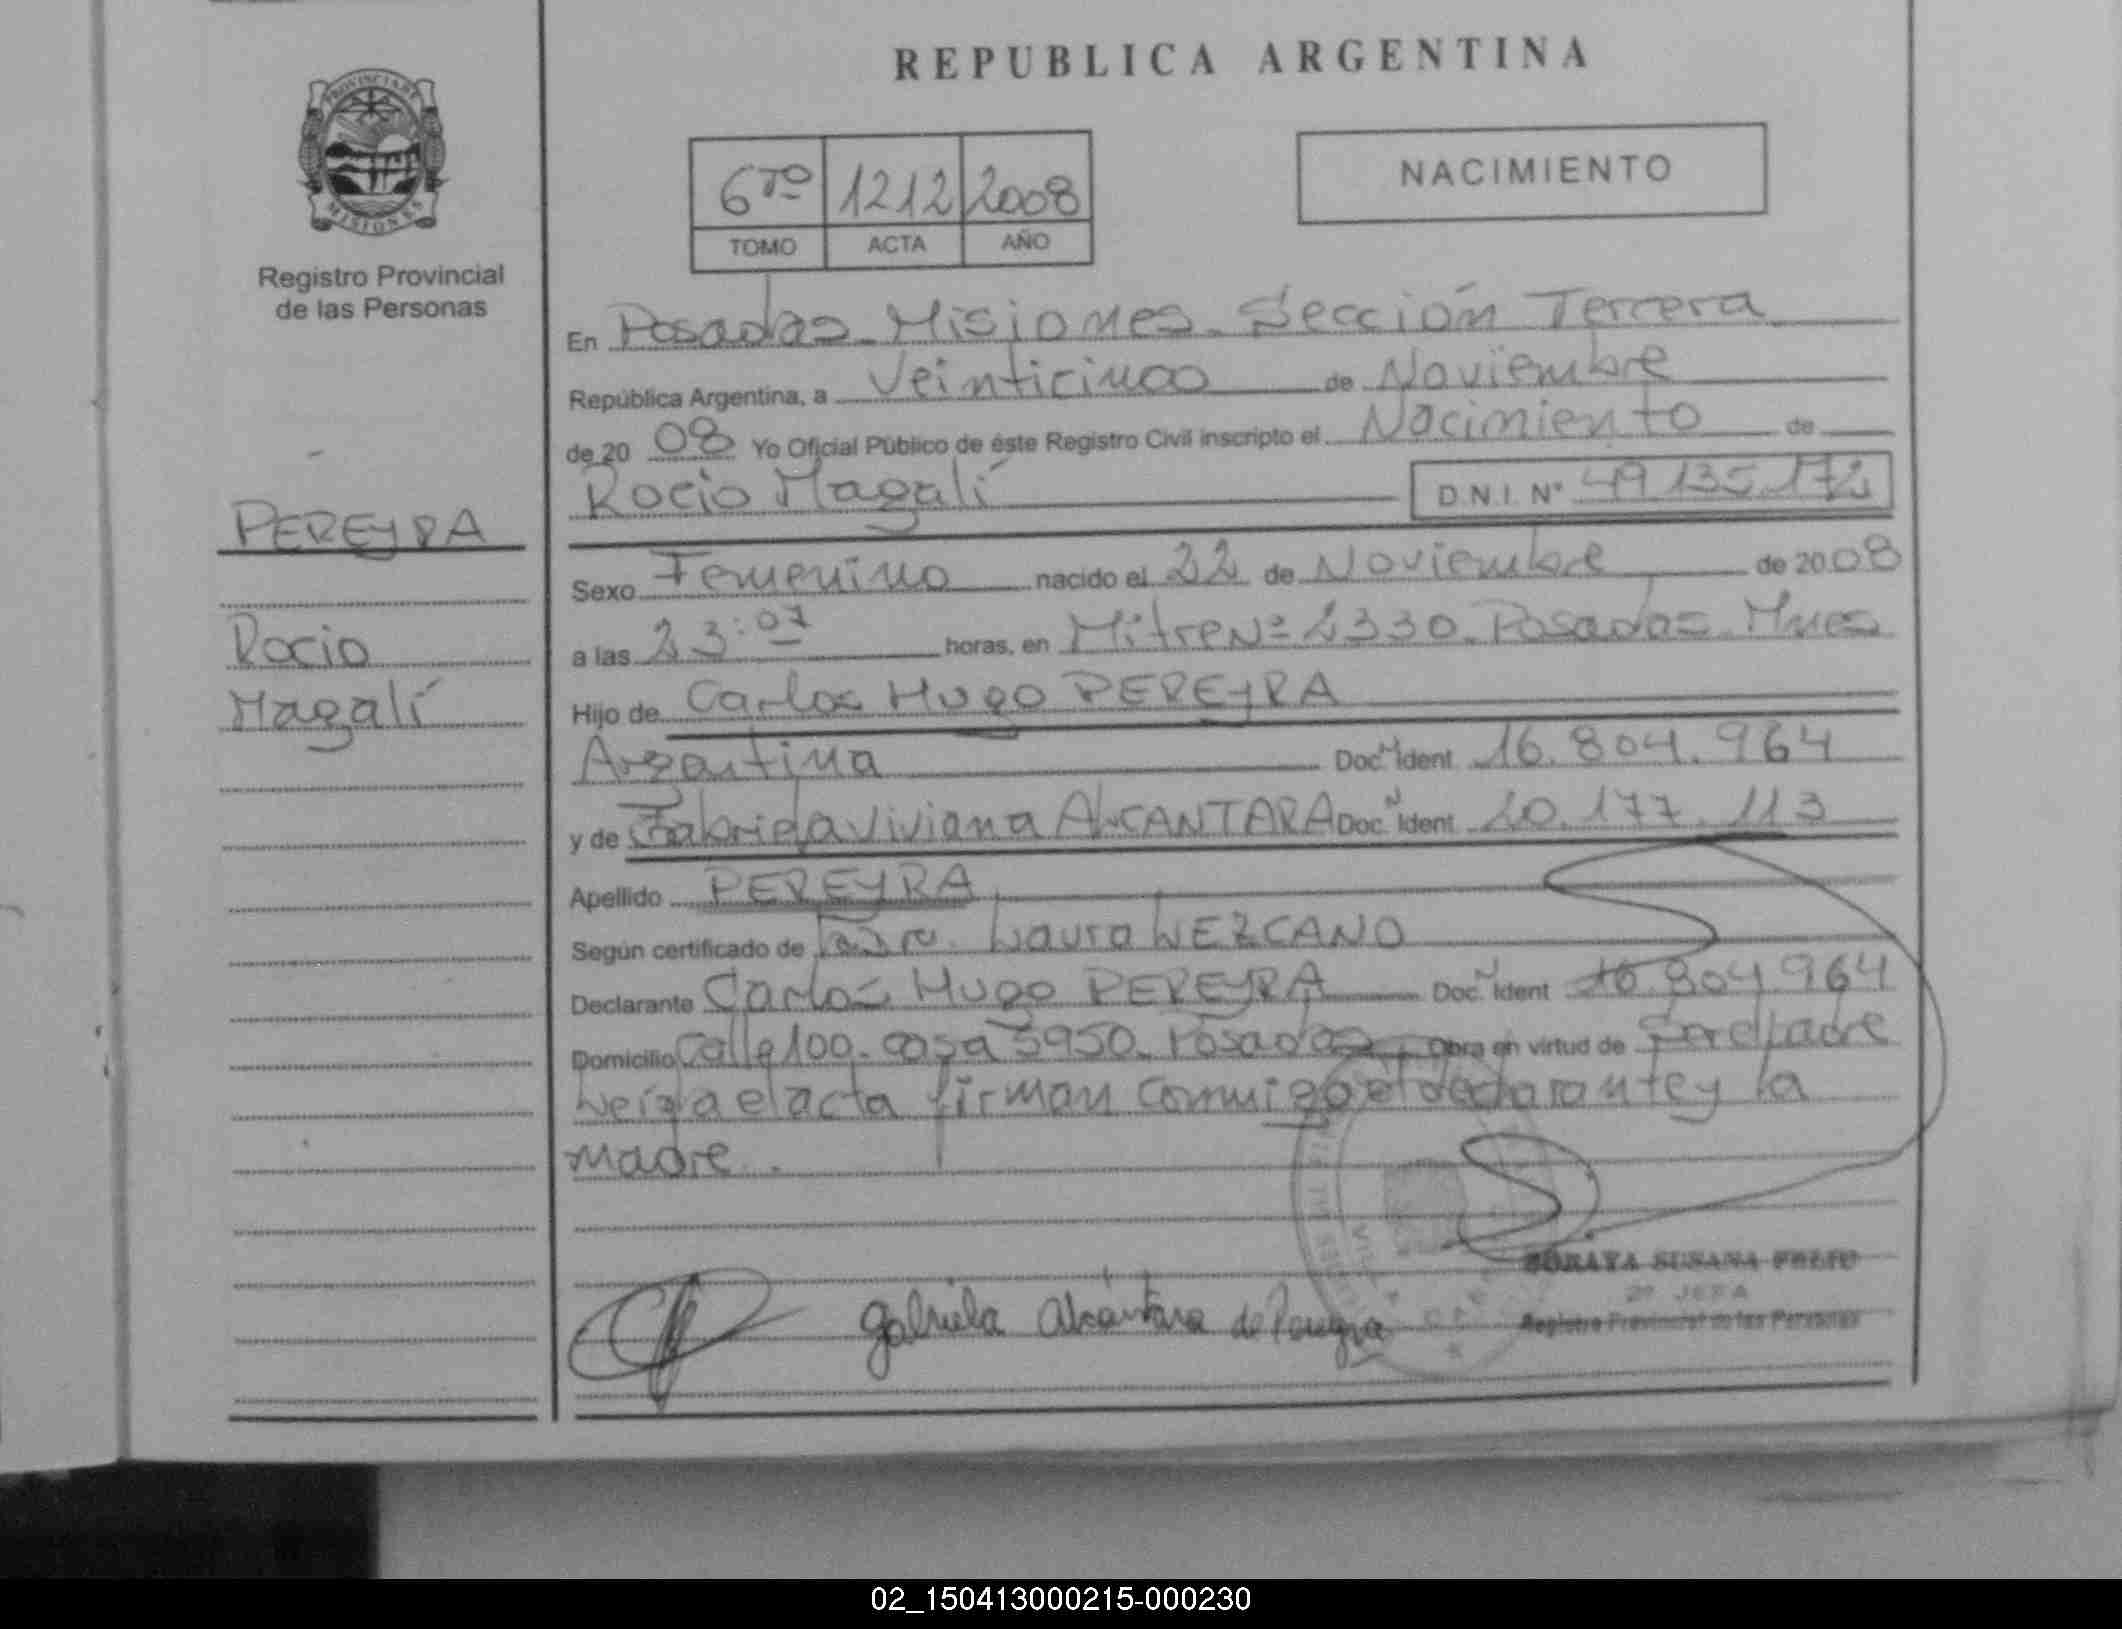 REPUBLICA ARGENTINA
PROVINCIA DE
MISIONES
Registro Provincial
de las Personas
6to 1212 2008
TOMO ACTA AÑO
NACIMIENTO
En Posadas Misiones Sección Tercera
República Argentina, a Veinticinco de Noviembre
de 20 08 Yo Oficial Público de éste Registro Civil inscripto el Nacimiento de
Rocio Magalí D.N.I. Nº 49.135.172
PEREYRA
Rocio
Magalí
Sexo Femenino nacido el 22 de Noviembre de 2008
a las 23:07 horas, en Mitre Nº 2330 Posadas Mnes
Hijo de Carlos Hugo PEREYRA
Argentina Doc. Ident. 16.804.964
y de Gabriela Viviana ALCANTARA Doc. Ident. 20.177.113
Apellido PEREYRA
Según certificado de Laura LEZCANO
Declarante Carlos Hugo PEREYRA Doc. Ident 16.804.964
Domicilio Calle 100. casa 5950. Posadas Obra en virtud de Ser el Padre
Leída el acta firman conmigo el declarante y la
madre.
SORAYA SUSANA
2º JEFA
Registro Provincial de las Personas
Gabriela Alcántara de Pereyra
02_150413000215-000230